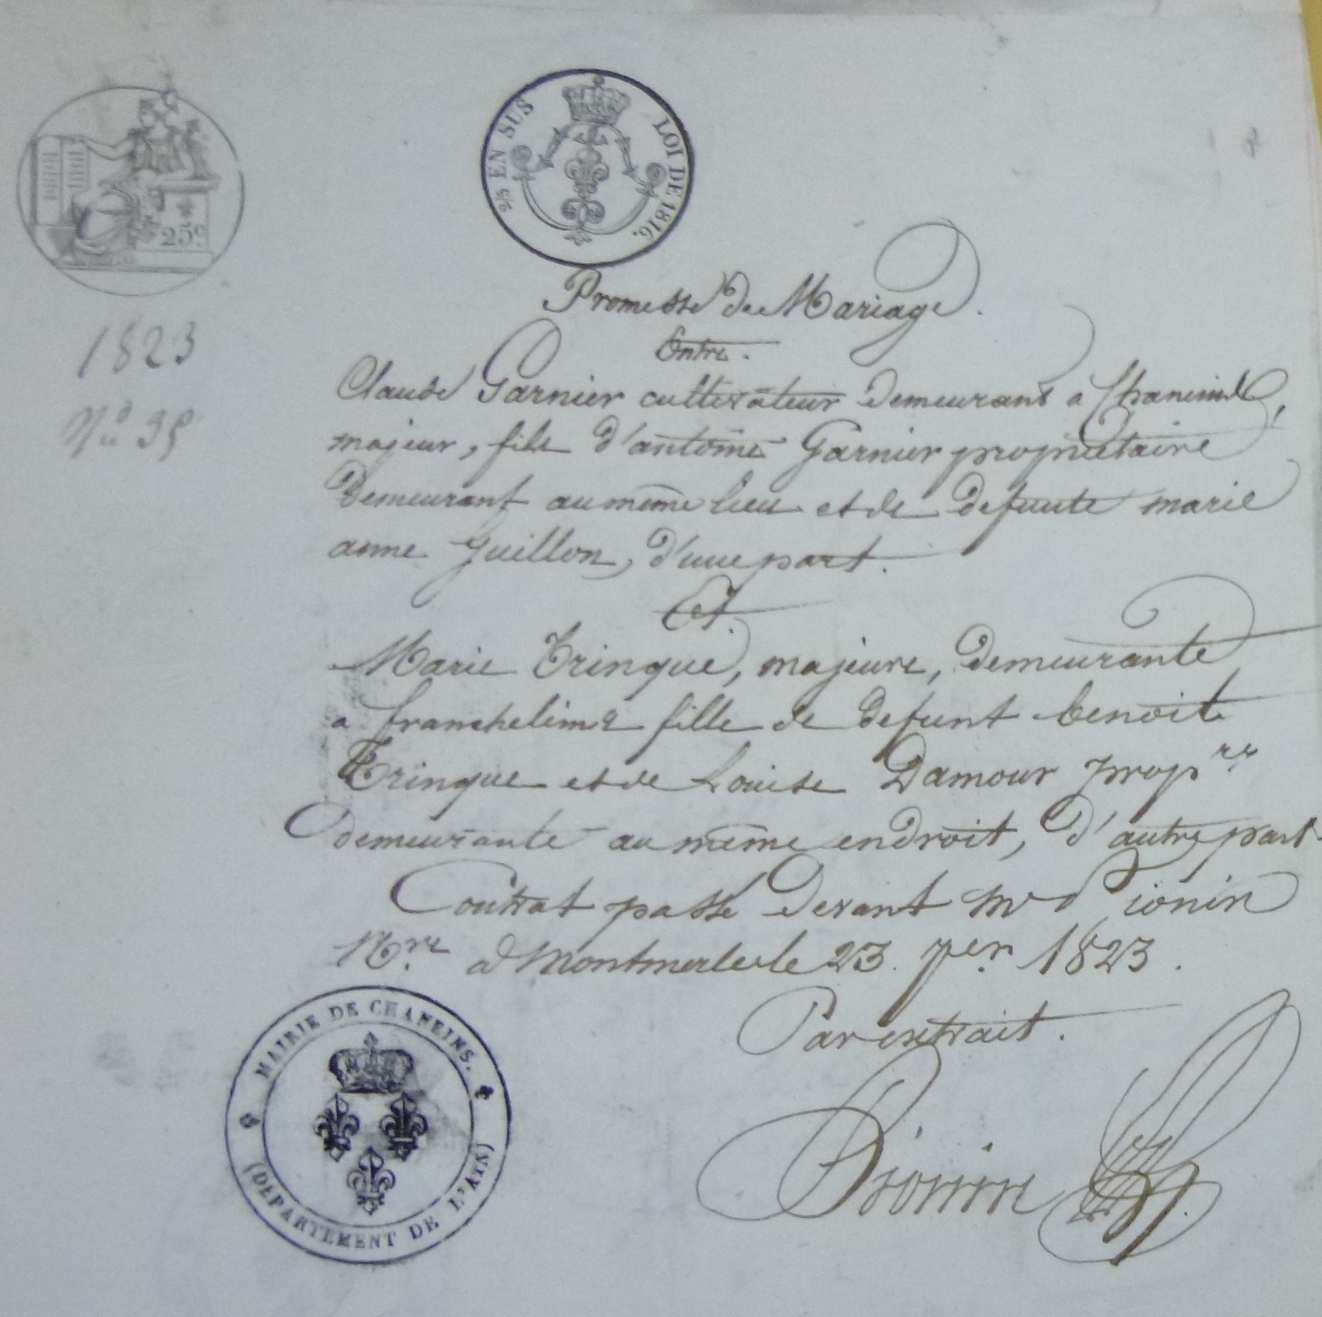 25 EN SUS
LOI DE 1816.
25c
1823
No 35
Promesse de Mariage.
Entre.
Claude Garnier cultivateur demeurant à Chaneins,
majeur, fils d'antoine Garnier propriétaire
demeurant au même lieu et de defunte marie
anne Guillon, d'une part.
Et.
Marie Trinque, majeure, demeurante
a francheleins fille de defunt benoit
Trinque et de Louise Damour prop.re
demeurante au même endroit, d'autre part
Contrat passé devant me Pionin
N.re a Montmerle le 23. 7bre 1823.
Par extrait.
Pionin
MAIRIE DE CHANEINS.
(DEPARTEMENT DE L'AIN)